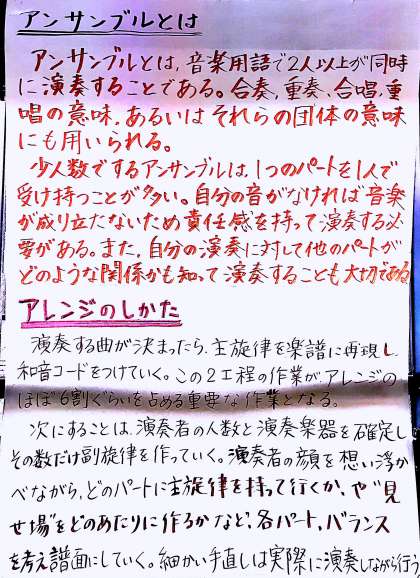 アンサンブルとは
アンサンブルとは、音楽用語で2人以上が同時
に演奏することである。合奏、重奏、合唱、重
唱の意味、あるいはそれらの団体の意味
にも用いられる。
少人数でするアンサンブルは、1つのパートを1人で
受け持つことが多い。自分の音がなければ音楽
が成り立たないため責任感を持って演奏する必
要がある。また、自分の演奏に対して他のパートが
どのような関係かも知って演奏することも大切である
アレンジのしかた
演奏する曲が決まったら、主旋律を楽譜に再現し
和音コードをつけていく。この2工程の作業が、アレンジの
ほぼ6割ぐらいを占める重要な作業となる。
次にすることは、演奏者の人数と演奏楽器を確定し
その数だけ副旋律を作っていく。演奏者の顔を想い浮か
べながら、どのパートに主旋律を持って行くか、や"見
せ場"をどのあたりに作るかなど、各パート、バランス
を考え譜面にしていく。細かい手直しは実際に演奏しながら行う